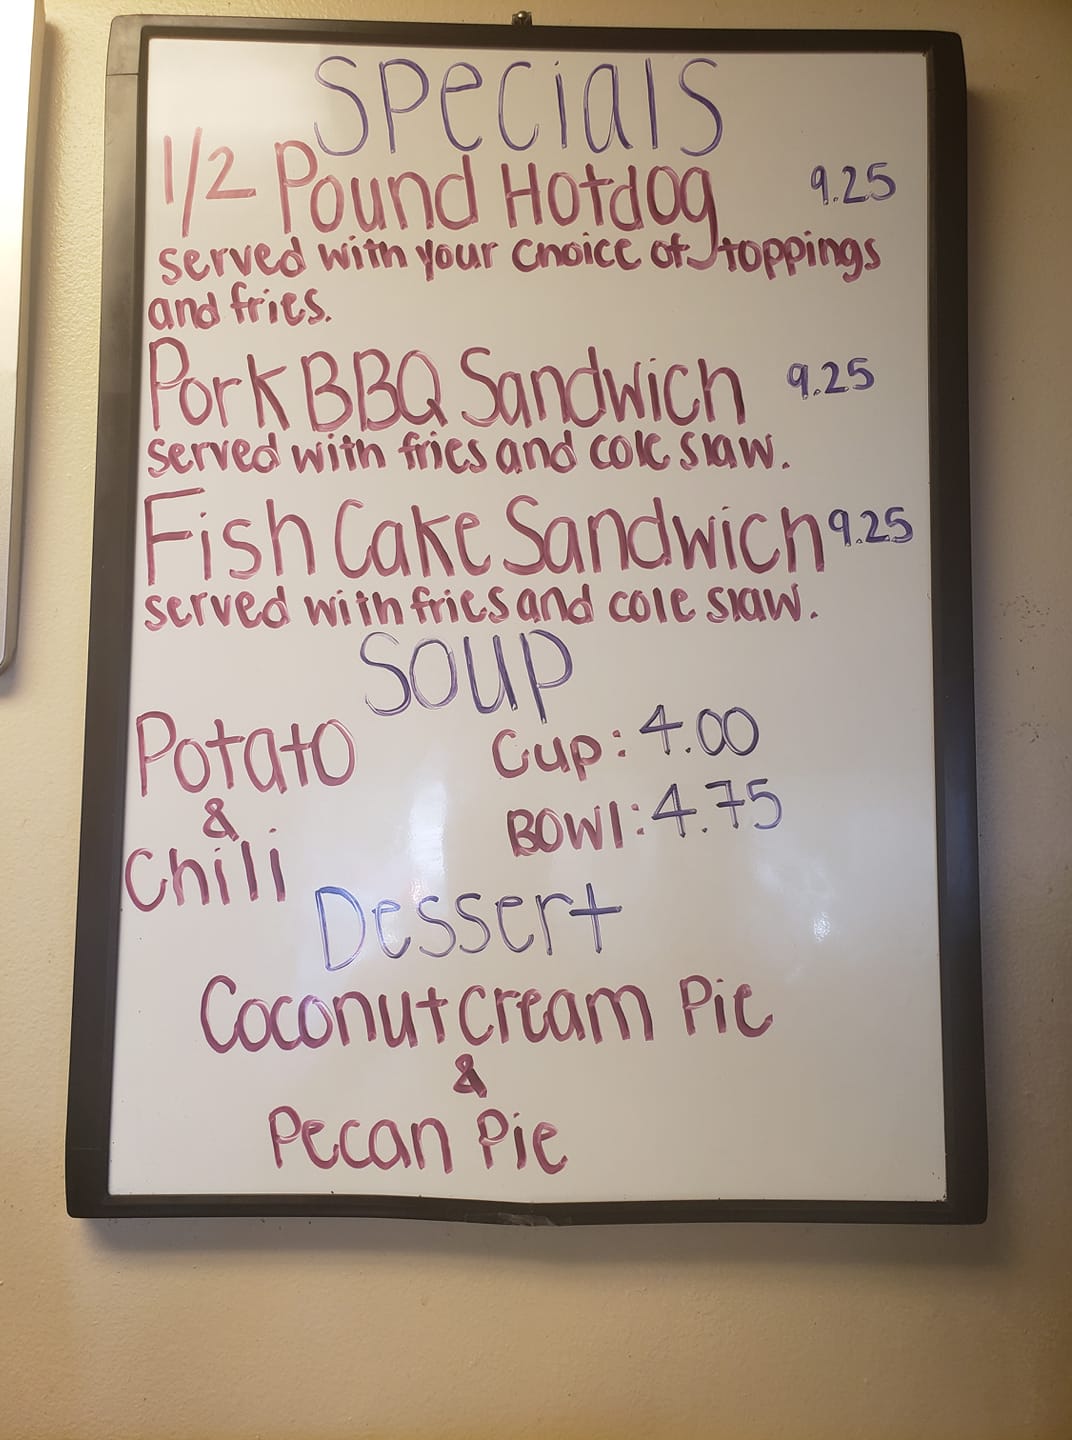 Specials
1/2 Pound Hotdog 9.25
served with your choice of toppings
and fries.
Pork BBQ Sandwich 9.25
served with fries and cole slaw.
Fish Cake Sandwich 9.25
served with fries and cole slaw.
Soup
Potato Cup: 4.00
&
Bowl: 4.75
Chili
Dessert
Coconut Cream Pie
&
Pecan Pie